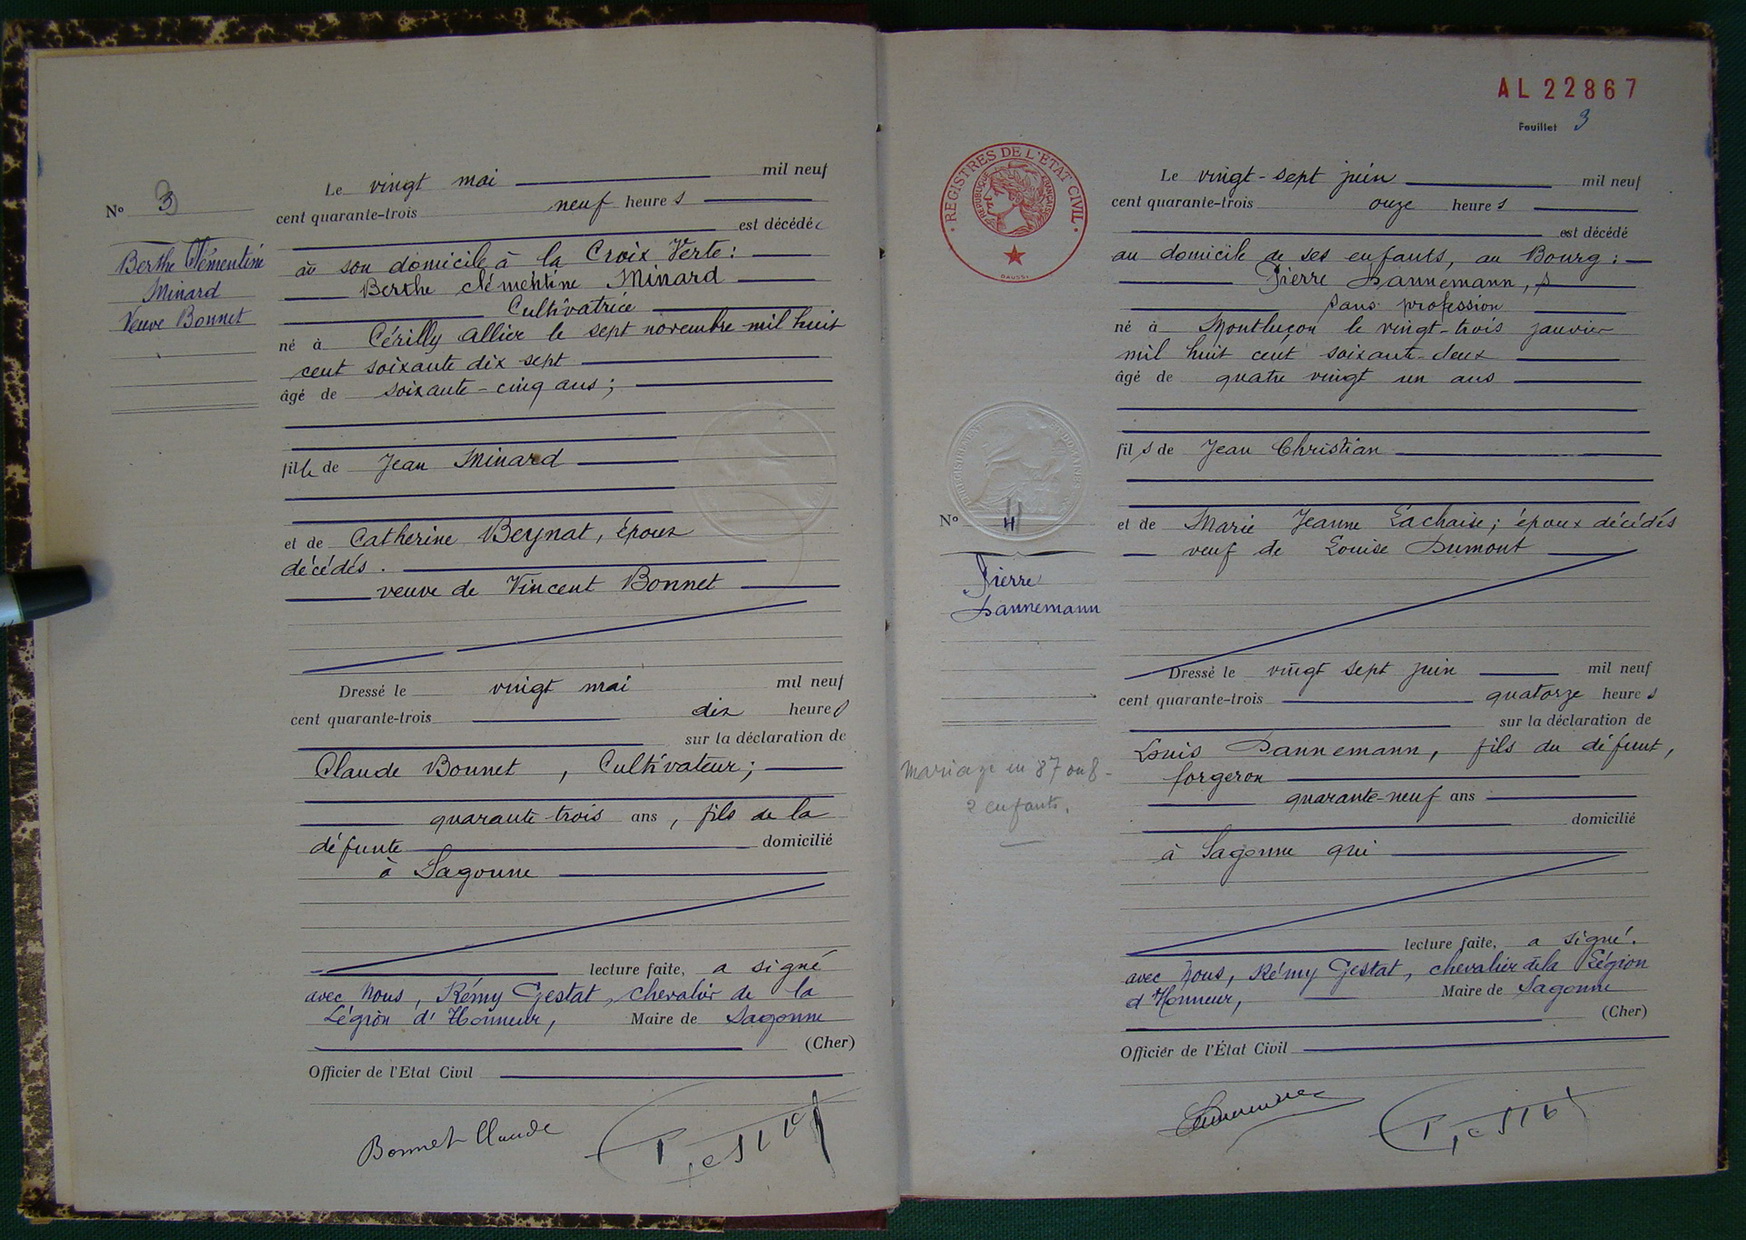 N° 3
Berthe Clémentine
Minard
Veuve Bonnet
Le vingt mai mil neuf
cent quarante-trois neuf heures
est décédée
en son domicile à la Croix Verte :
Berthe clémentine Minard
Cultivatrice
né à Cérilly Allier le sept novembre mil huit
cent soixante dix sept
âgé de soixante-cinq ans ;
fille de Jean Minard
et de Catherine Beynat, époux
décédés.
veuve de Vincent Bonnet
Dressé le vingt mai mil neuf
cent quarante-trois dix heures
sur la déclaration de
Claude Bonnet, Cultivateur ;
quarante-trois ans, fils de la
défunte domicilié
à Sagonne
lecture faite, a signé
avec Nous, Rémy Gestat, chevalier de la
Légion d'Honneur, Maire de Sagonne
(Cher)
Officier de l'Etat Civil
Bonnet Claude
AL 22867
Feuillet 3
REGISTRES DE L'ETAT CIVIL
REPUBLIQUE FRANÇAISE
N° 4
Pierre
Dannemann
mariage en 87 ou 8-
2 enfants.
Le vingt-sept juin mil neuf
cent quarante-trois onze heures
est décédé
au domicile de ses enfants, au Bourg :
Pierre Dannemann,
sans profession
né à Montluçon le vingt-trois janvier
mil huit cent soixante-deux
âgé de quatre vingt un ans
fils de Jean Christian
et de Marie Jeanne Lachaise ; époux décédés
veuf de Louise Dumont
Dressé le vingt sept juin mil neuf
cent quarante-trois quatorze heures
sur la déclaration de
Louis Dannemann, fils du défunt,
forgeron
quarante-neuf ans
domicilié
à Sagonne qui
lecture faite, a signé.
avec Nous, Rémy Gestat, chevalier de la Légion
d'Honneur, Maire de Sagonne
(Cher)
Officier de l'État Civil